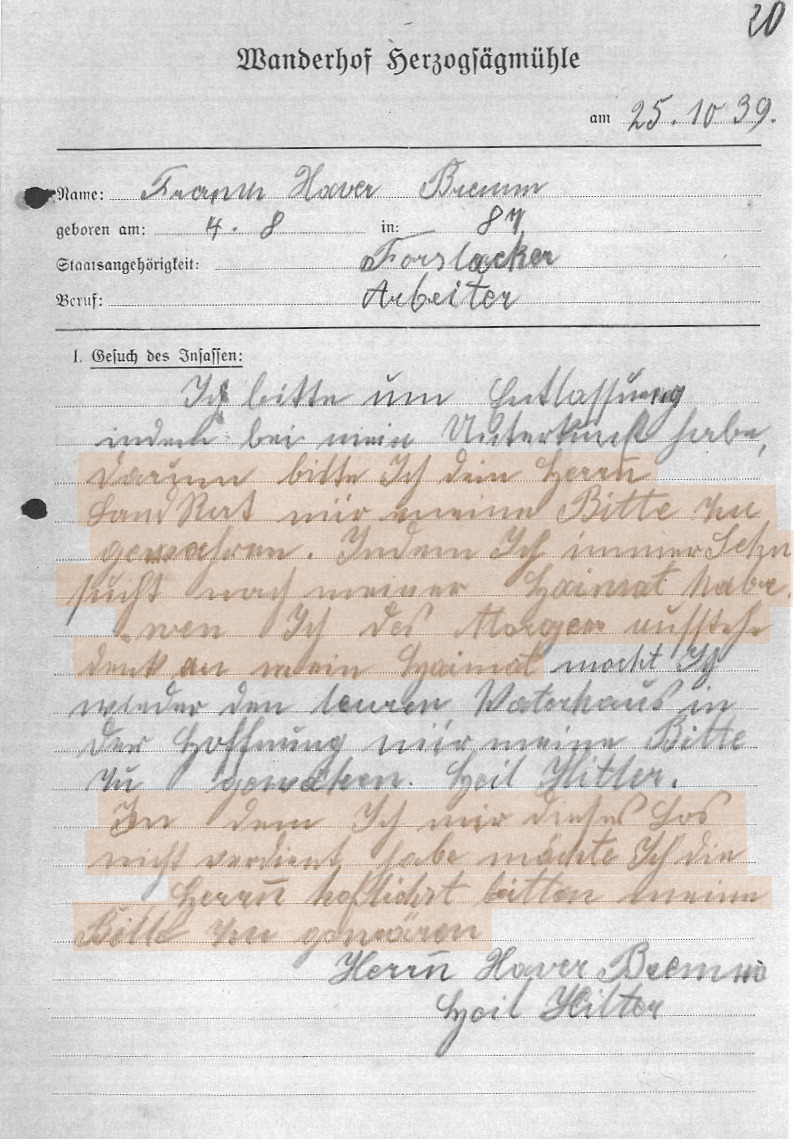 20
Wanderhof Herzogsägmühle
am 25. 10 39.
Name: Franz Xaver Bremm
geboren am: 4. 8 in: 87
Staatsangehörigkeit: Forslacker
Beruf: Arbeiter
I. Gesuch des Insassen:
Ich bitte um Entlassung
indem bei mein Unterkunft habe,
Darum bitte Ich dein Herrn
Land Rat mir meine Bitte zu
gewahren. Indem Ich immer Sehn
sucht nach meiner Haimat habe.
wen Ich des Morgen aufstehe
denk an mein Haimat mocht Ich
wieder den teuren Vaterhaus in
der Hoffnung mir meine Bitte
zu gewähen. Heil Hitler.
In dem Ich mir dieses Los
nicht verdient habe möchte Ich die
Herrn höflichst bitten meine
Bitte zu gewären
Herrn Xaver Bremm
Heil Hitler